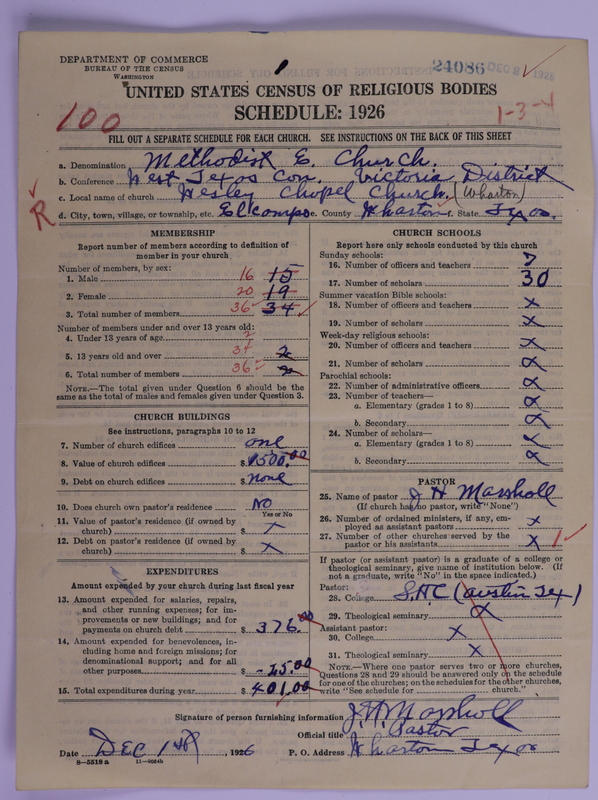 DEPARTMENT OF COMMERCE
BUREAU OF THE CENSUS
WASHINGTON
24086 DEC 8 1926
UNITED STATES CENSUS OF RELIGIOUS BODIES
SCHEDULE: 1926
100
1-3-4
FILL OUT A SEPARATE SCHEDULE FOR EACH CHURCH. SEE INSTRUCTIONS ON THE BACK OF THIS SHEET
a. Denomination Methodist E. Church.
b. Conference West Texas Con. Victoria District
c. Local name of church Wesley Chapel Church. (Wharton)
R
d. City, town, village, or township, etc. El campo e. County Wharton f. State Texas.
MEMBERSHIP
Report number of members according to definition of
member in your church
Number of members, by sex:
1. Male 16 15
2. Female 20 19
3. Total number of members 36 34
Number of members under and over 13 years old:
4. Under 13 years of age 2
5. 13 years old and over 34 2
6. Total number of members 36
NOTE.—The total given under Question 6 should be
same as the total of males and females given under Question 3.
CHURCH BUILDINGS
See instructions, paragraphs 10 to 12
7. Number of church edifices one
8. Value of church edifices $1500.00
9. Debt on church edifices $ None
10. Does church own pastor's residence No
Yes or No
11. Value of pastor's residence (if owned by
church) $ x
12. Debt on pastor's residence (if owned by
church) $ x
EXPENDITURES
Amount expended by your church during last fiscal year
13. Amount expended for salaries, repairs,
and other running expenses; for im-
provements or new buildings; and for
payments on church debt $ 376.00
14. Amount expended for benevolences, in-
cluding home and foreign missions; for
denominational support; and for all
other purposes $ 25.00
15. Total expenditures during year $ 401.00
CHURCH SCHOOLS
Report here only schools conducted by this church
Sunday schools:
16. Number of officers and teachers 7
17. Number of scholars 30
Summer vacation Bible schools:
18. Number of officers and teachers x
19. Number of scholars x
Week-day religious schools:
20. Number of officers and teachers x
21. Number of scholars x
Parochial schools:
22. Number of administrative officers x
23. Number of teachers—
a. Elementary (grades 1 to 8) x
b. Secondary x
24. Number of scholars—
a. Elementary (grades 1 to 8) x
b. Secondary x
PASTOR
25. Name of pastor J H Marshall
(If church has no pastor, write "None")
26. Number of ordained ministers, if any, em-
ployed as assistant pastors x
27. Number of other churches served by the
pastor or his assistants x 1
If pastor (or assistant pastor) is a graduate of a college or
theological seminary, give name of institution below. (If
not a graduate, write "No" in the space indicated.)
Pastor:
28. College S.H.C (Austin Tex)
29. Theological seminary x
Assistant pastor:
30. College x
31. Theological seminary x
NOTE.—Where one pastor serves two or more churches,
Questions 28 and 29 should be answered only on the schedule
for one of the churches; on the schedules for the other churches,
write "See schedule for church."
Signature of person furnishing information J. H. Marshall
Official title Pastor
Date Dec 1st, 1926 P. O. Address Wharton Texas
8—5518 a 11—9024b